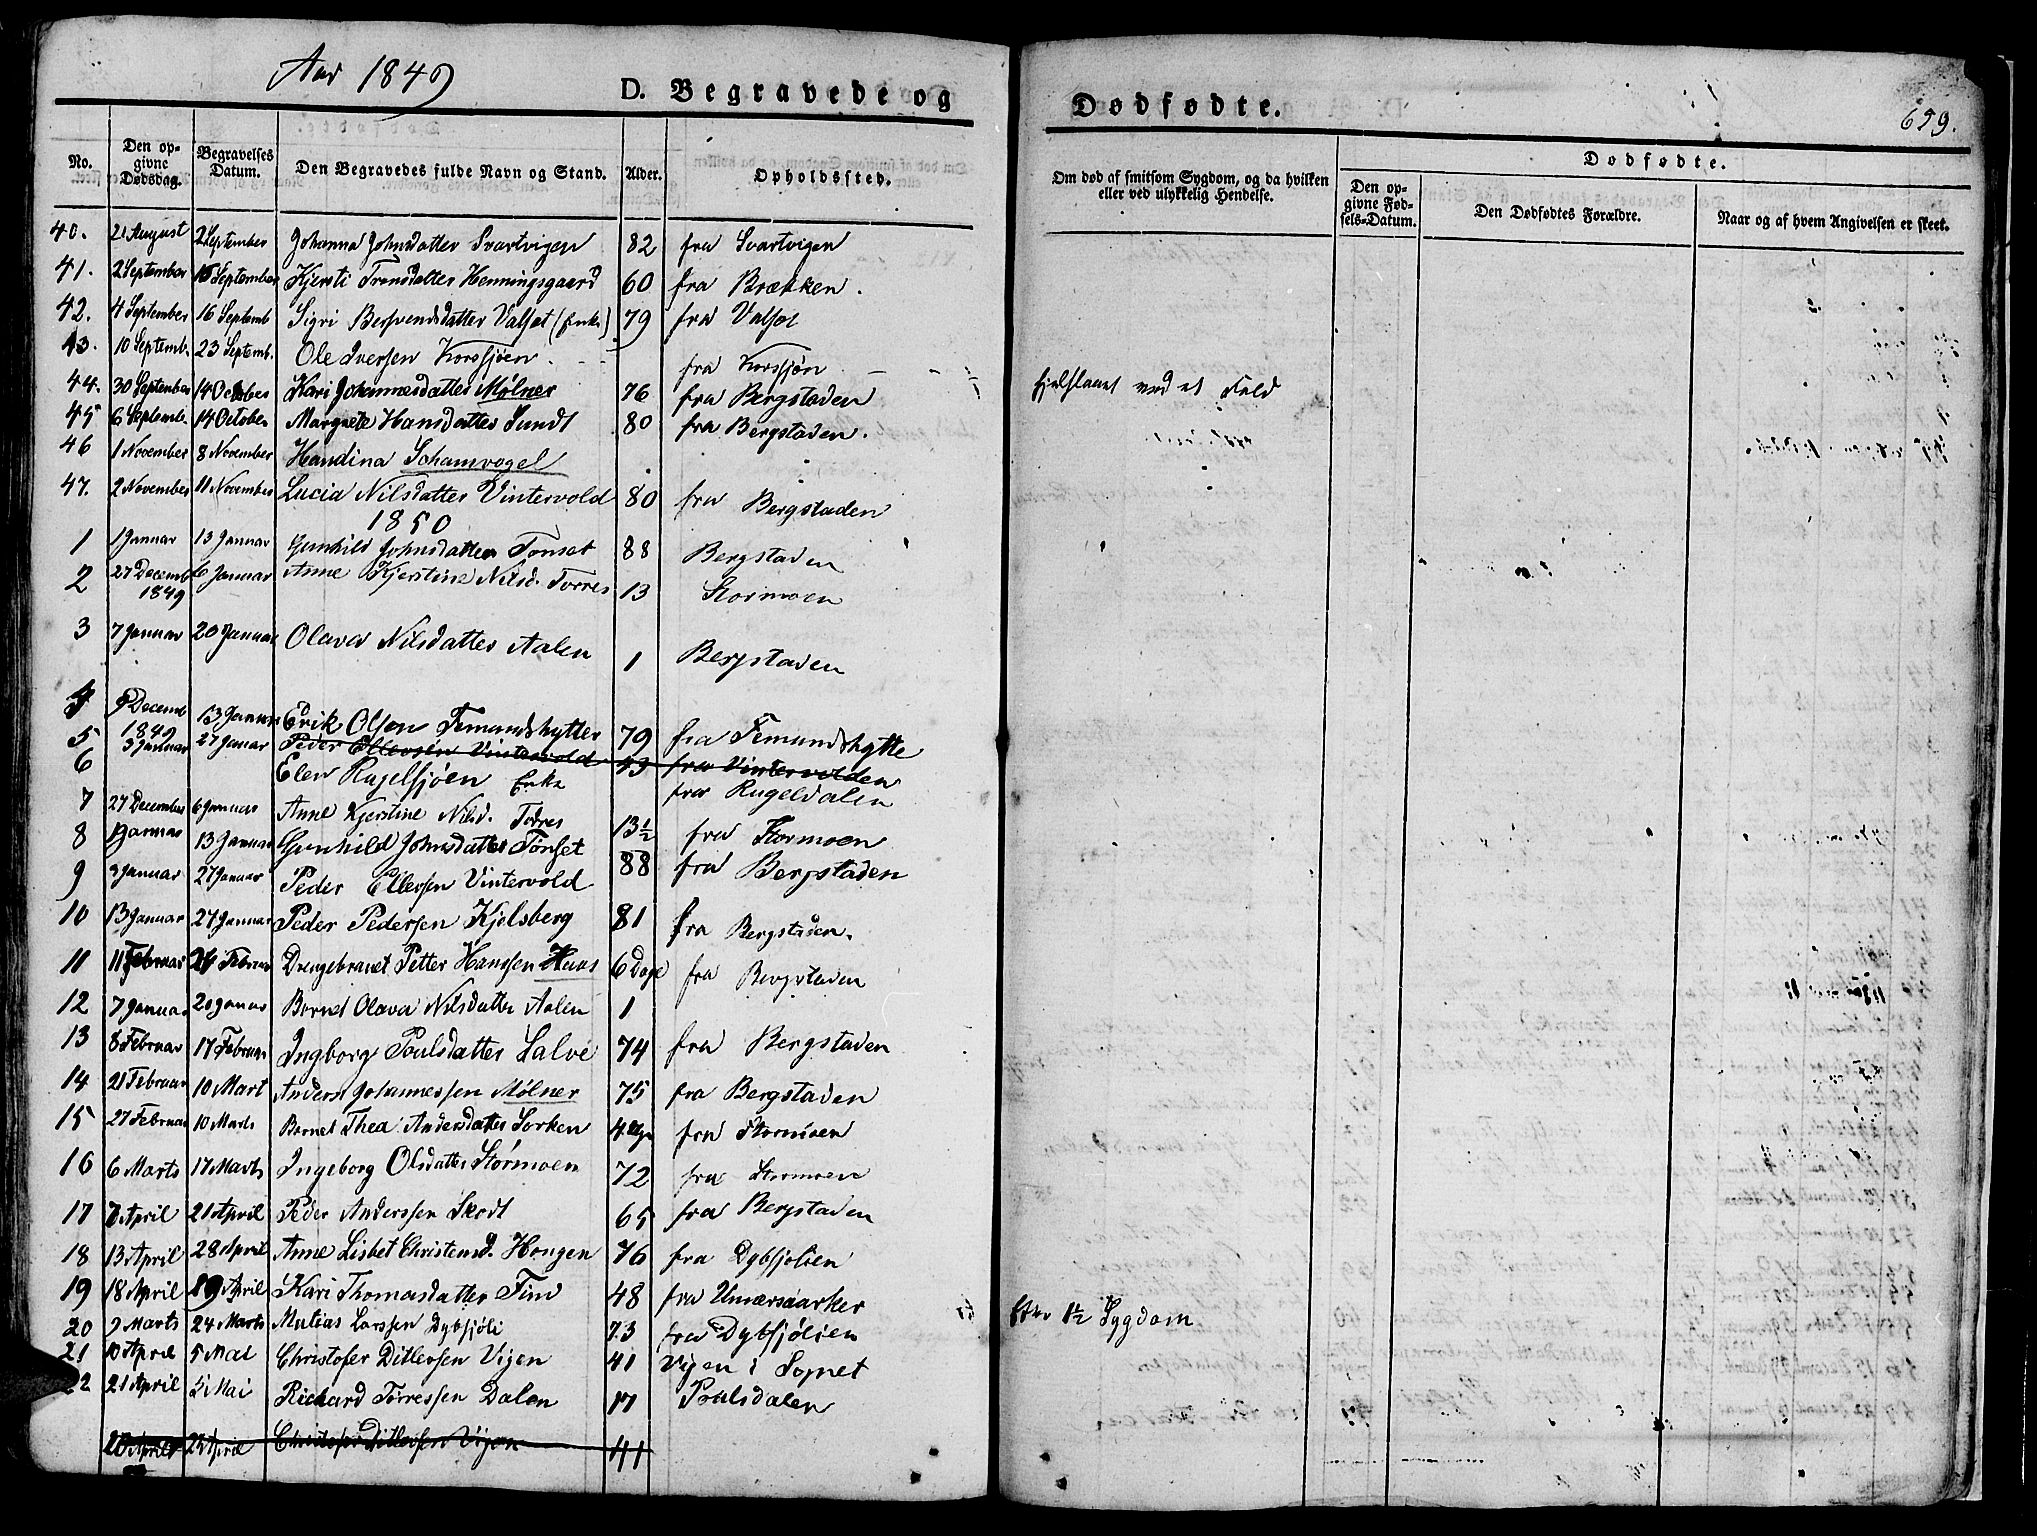 Aar 1849
D. Begravede og
Dødfødte.
659.
No.
Den opgivne Dødsdag.
Begravelses Datum.
Den Begravedes fulde Navn og Stand.
Alder.
Opholdssted.
Om død af smitsom Sygdom, og da hvilken eller ved ulykkelig Hendelse.
Dødfødte.
Den opgivne Fødsels-Datum.
Den Dødfødtes Forældre.
Naar og af hvem Angivelsen er skeet.
40. 21 August 2 September Johanna Johnsdatter Svartvigen 82 fra Svartvigen
41. 2 September 15 September Kjersti Trondsdatter Henningsgaard 60 fra Brækken.
42. 4 September 16 Septemb Sigri Bersvendsdatter Valset (Enke) 79 fra Valset
43. 10 Septemb. 23 Septemb. Ole Iversen Korssjøen fra Korssjøn ihjelslaaet ved et Fald
44. 30 September 14 October Kari Johannesdatter Mølner 76 fra Bergstaden
45 6 Septemb. 14 October Margrete Hansdatter Sundt 80 fra Bergstaden.
46 1 November 8 November Handina Schamvogel
47. 2 November 11 November Lucia Nilsdatter Vintervold 80 fra Bergstaden
1850
1 1 Januar 13 Januar Gunhild Johnsdatter Tønset 88 Bergstaden
2 27 Decemb 1849 6 Januar Anne Kjerstine Nilsd. Torres 13 Stormoen
3 7 Januar 20 Januar Olava Nilsdatter Aalen 1 Bergstaden
4 9 Decemb 1849 13 Januar Erik Olsen Femundshytten 79 fra Femundshytte
5 3 Januar 27 Januar Peder Ellevsen Vintervold 43 fra Vintervolden
6 Elen Rugelsjøen Enke fra Rugeldalen
7 27 December 6 Januar Anne Kjerstine Nilsd. Torres 13½ fra Stormoen
8 1 Januar 13 Januar Gunhild Johnsdatter Tønset 88 fra Bergstaden
9 3 Januar 27 Januar Peder Ellevsen Vintervold
10 13 Januar 27 Januar Peder Pedersen Kjelsberg 81 fra Bergstaden.
11 11 Februar 24 Februar Drengebarnet Petter Hanssen Haas 6 Dage fra Bergstaden
12 7 Januar 20 Januar Barnet Olava Nilsdatter Aalen 1
13 8 Februar 17 Februar Ingborg Poulsdatter Salve 74 fra Bergstaden
14 21 Februar 10 Mart Anders Johannessen Mølner 75 fra Bergstaden
15 27 Februar 10 Marts Barnet Thea Andersdatter Sorken 4 fra Stormoen
16 6 Marts 17 Marts Ingeborg Olsdatter Stormoen 72 fra Stormoen
17 7 April 21 April Peder Anderssen Skodt 65 fra Bergstaden
18 13 April 28 April Anne Lisbet Christensd. Hongen 76 fra Dybsjølien
19 18 April 19 April Kari Thomasdatter Find 48 fra
20 9 Marts 24 Marts Matias Larssen Dybsjøli 73 fra Dybsjølien 1½ Sygdom
21 10 April 5 Mai Christofer Ditlevsen Vigen 41 Vigen i Sognet
22 21 April 5 Mai Richard Tørressen Dalen 17 Poulsdalen
20 April 24 April Christofer Ditlevsen Vigen 41